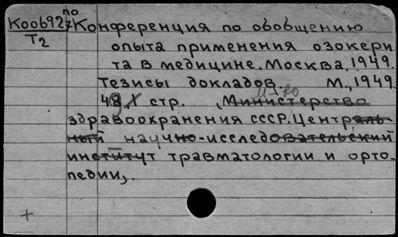 по
Коо6927 Конференция по обобщению
Т2
опыта применения озокери
та в медицине. Москва, 1949.
Тезисы докладов. М., 1949.
48, X стр. , Министерство
здравоохранения СССР. Централь-
ный научно-исследовательский
институт травматологии и орто-
педии,.
+